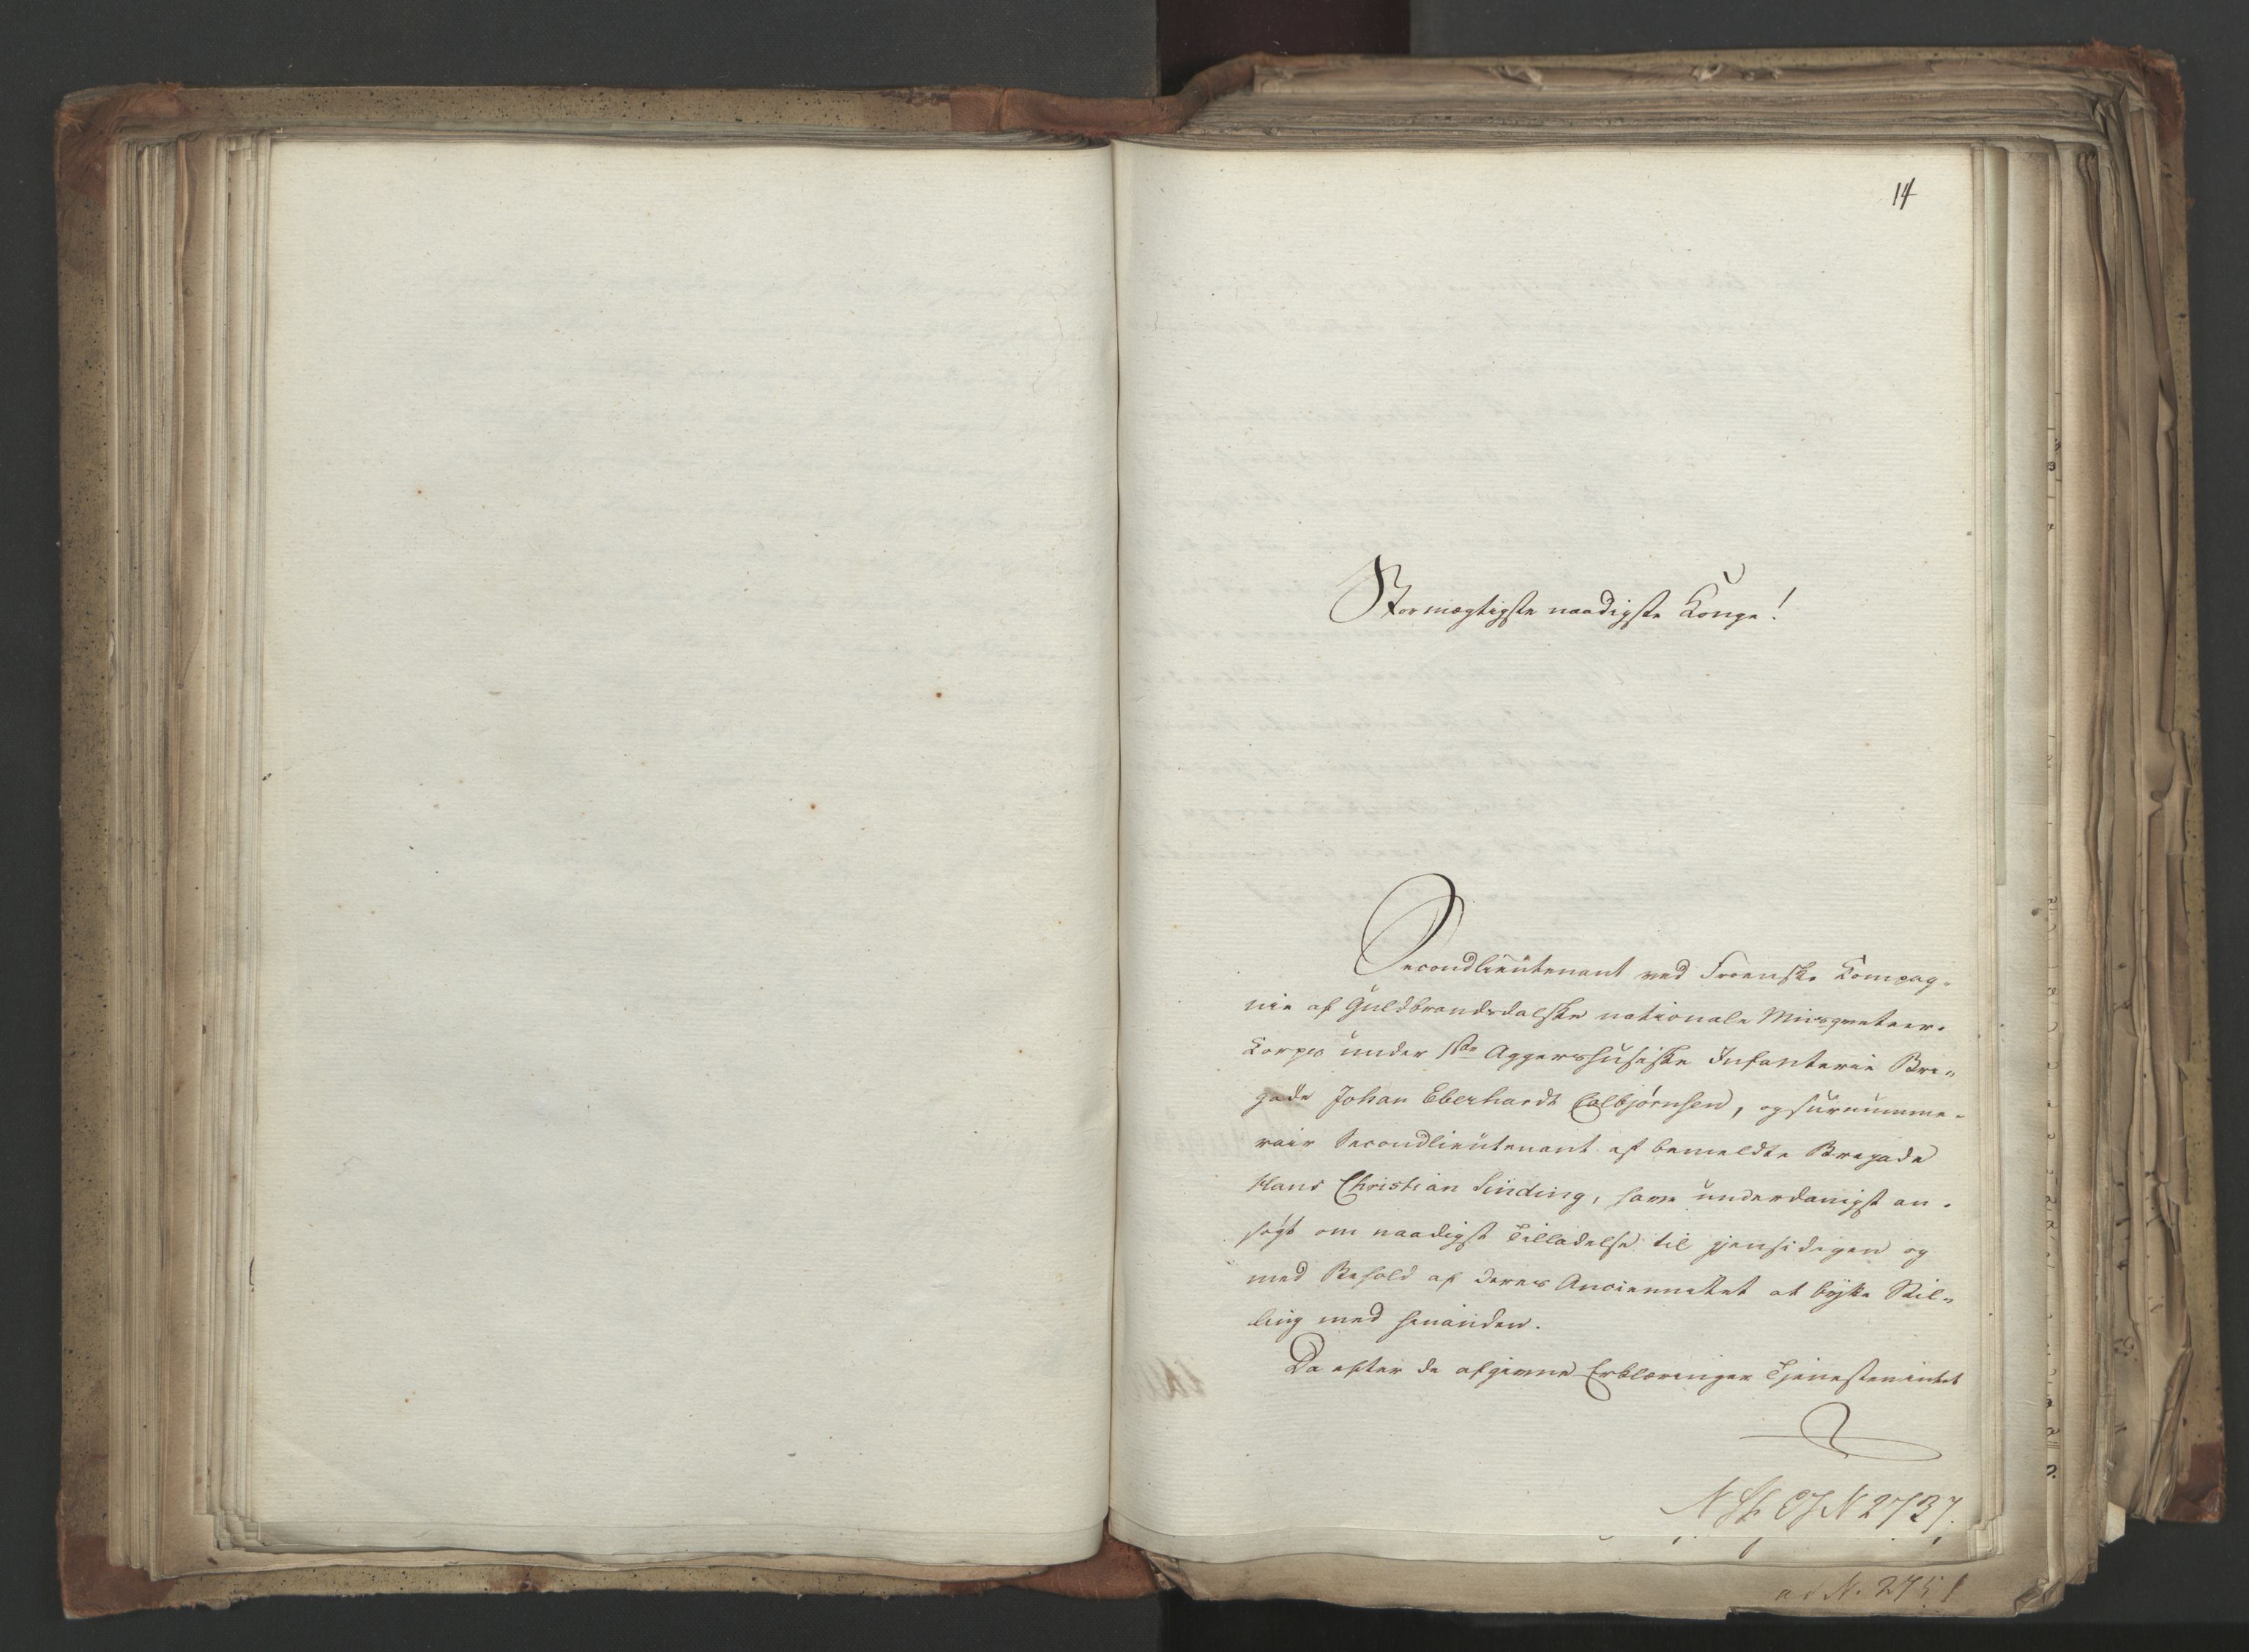 14
Stormægtigste naadigste Konge!
Secondlieutenant ved Froenske Kompag-
nie af Guldbrandsdalske nationale Musqueteer-
Korps under 1ste Aggershusiske Infanterie Bri-
gade Johan Eberhardt Colbjørnsen, og surnumme-
rair Secondlieutenant af bemeldte Brigade
Hans Christian Sinding, have underdanigst an-
søgt om naadigst Tilladelse til gjensidigen og
med Behold af deres Anciennettet at bytte Stil-
ling med hinanden.
Da efter de afgivne Erklæringer Tjenesten intet
N 2737.
ad N. 2751